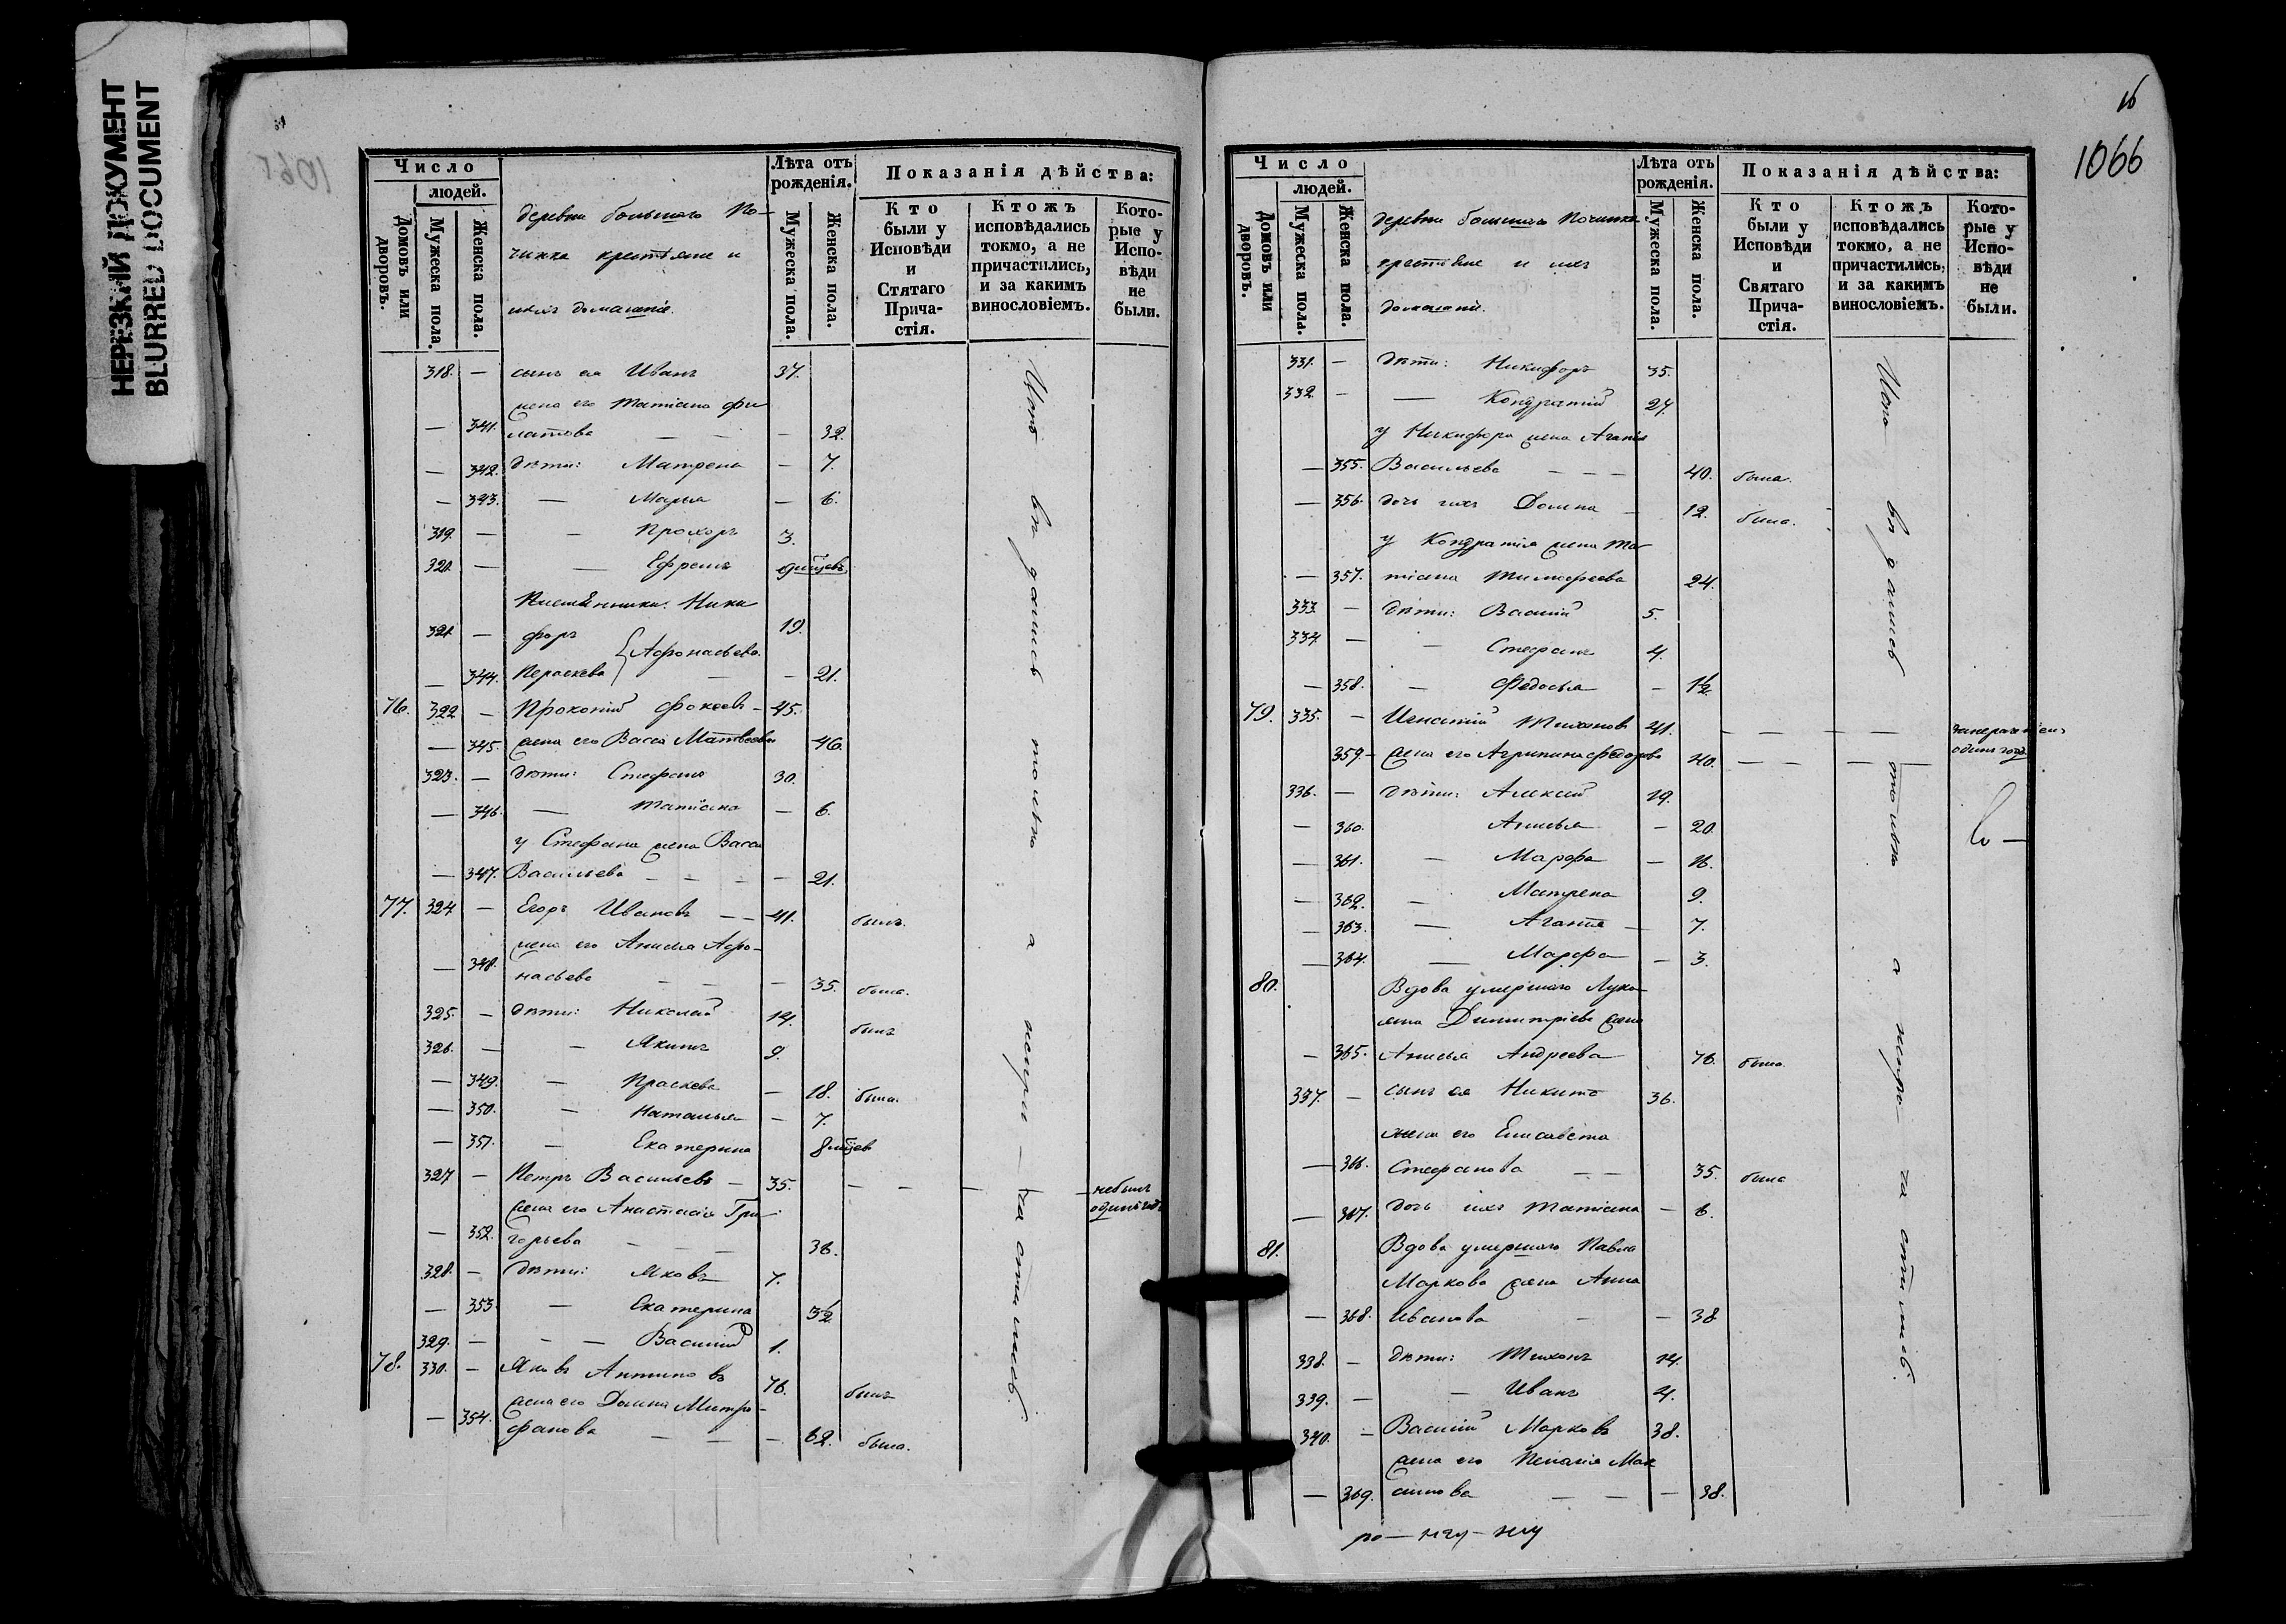 НЕРЕЗКИЙ ДОКУМЕНТ
BLURRED DOCUMENT
1065
Число
людей.
Домовъ или дворовъ.
Мужеска пола.
Женска пола.
деревни большаго По-
чинка крестьяне и
ихъ домашніе.
Лѣта отъ рожденія.
Мужеска пола.
Женска пола.
Показанія дѣйства:
Кто были у Исповѣди и Стятаго Прича-стія.
Ктожъ исповѣдались токмо, а не причастились, и за какимъ винословіемъ.
Кото-рые у Испо-вѣди не были.
318. — сынъ ея Иванъ 37.
жена его Татіана Фи
— 341. латова — — — 32.
— 342. дѣти: Матрена — 7.
— 343. — Марья — 6.
319. — — Прохоръ 3.
320. — — Ефремъ
Племѣнники: Ники
321. — форъ 19.
{ Афонасьева
— 344. Пераскева — — 21.
76. 322 — Прокопій Фокеевъ — 45.
— 345. жена его Васса Матвеева 46.
323. — дѣти: Стефанъ 30.
— 346. — Татіана — 6.
у Стефана жена Васса
— 347. Васильева — — — — 21.
77. 324 — Егоръ Ивановъ — — 41. былъ.
жена его Анисья Афо-
— 348. насьева — — — 35. была.
325. — дѣти: Николай 14. былъ
326. — — Якимъ 9.
— 349. — Праскева — 18. была.
— 350. — Наталья — 7.
— 351. — Екатерина 8 мѣсяцев
327 — Петръ Васильевъ — 35. — — — — небылъ
одинъ годъ
жена его Анастасія Гри-
— 352. горьева — — — 36.
328. — дѣти: Яковъ 7.
— 353. — Екатерина 3½
329. — — — Василій 1.
78. 330. — Яковъ Антиповъ 76. былъ
жена его Домна Митро-
— 354. фанова — — — 62. была.
Исповѣдались только а непри — частились.
16
1066
Число
людей.
Домовъ или дворовъ.
Мужеска пола.
Женска пола.
деревни большаго Починка
крестьяне и ихъ
домашніе.
Лѣта отъ рожденія.
Мужеска пола.
Женска пола.
Показанія дѣйства:
Кто были у Исповѣди и Святаго Прича-стія.
Ктожъ исповѣдались токмо, а не причастились, и за какимъ винословіемъ.
Кото-рые у Испо-вѣди не были.
331. — дѣти: Никифоръ 35.
332 — — Кондратій 27.
у Никифора жена Агапія
— 355. Васильева — — — 40. была.
— 356 дочь ихъ Домна — 12. была.
у Кондратія жена Та
— 357. тіана Тимофеева 24.
333. — дѣти: Василій 5.
334. — — Стефанъ 4.
— 358. — Федосья — 1½
79. 335. — Игнатій Тихоновъ 41. — — — —
одинъ годъ
359 — жена его Агрипина Федорова 40. — — — —
336. — дѣти: Алексій 19.
— 360. Анисья — 20.
— 361. — Марфа — 16.
— 362. — Матрена 9.
— 363. — Агапія — 7.
— 364. — Марфа — 3.
80. Вдова умершаго Лука
яна Димитріева жена
— 365. Анисья Андреева 76. была.
337. — сынъ ея Никита 36.
жена его Елисавета
— 366. Стефанова — — 35. была
— 367. дочь ихъ Татіана — 6.
81. Вдова умершаго Павла
Маркова жена Анна
— 368. Иванова — — 38
338. — дѣти: Тихонъ 14.
339. — — Иванъ 4.
340. — Василій Марковъ 38.
жена его Пелагія Мак
— 369. симова — — — 38.
Исповѣдались только а непри — частились.